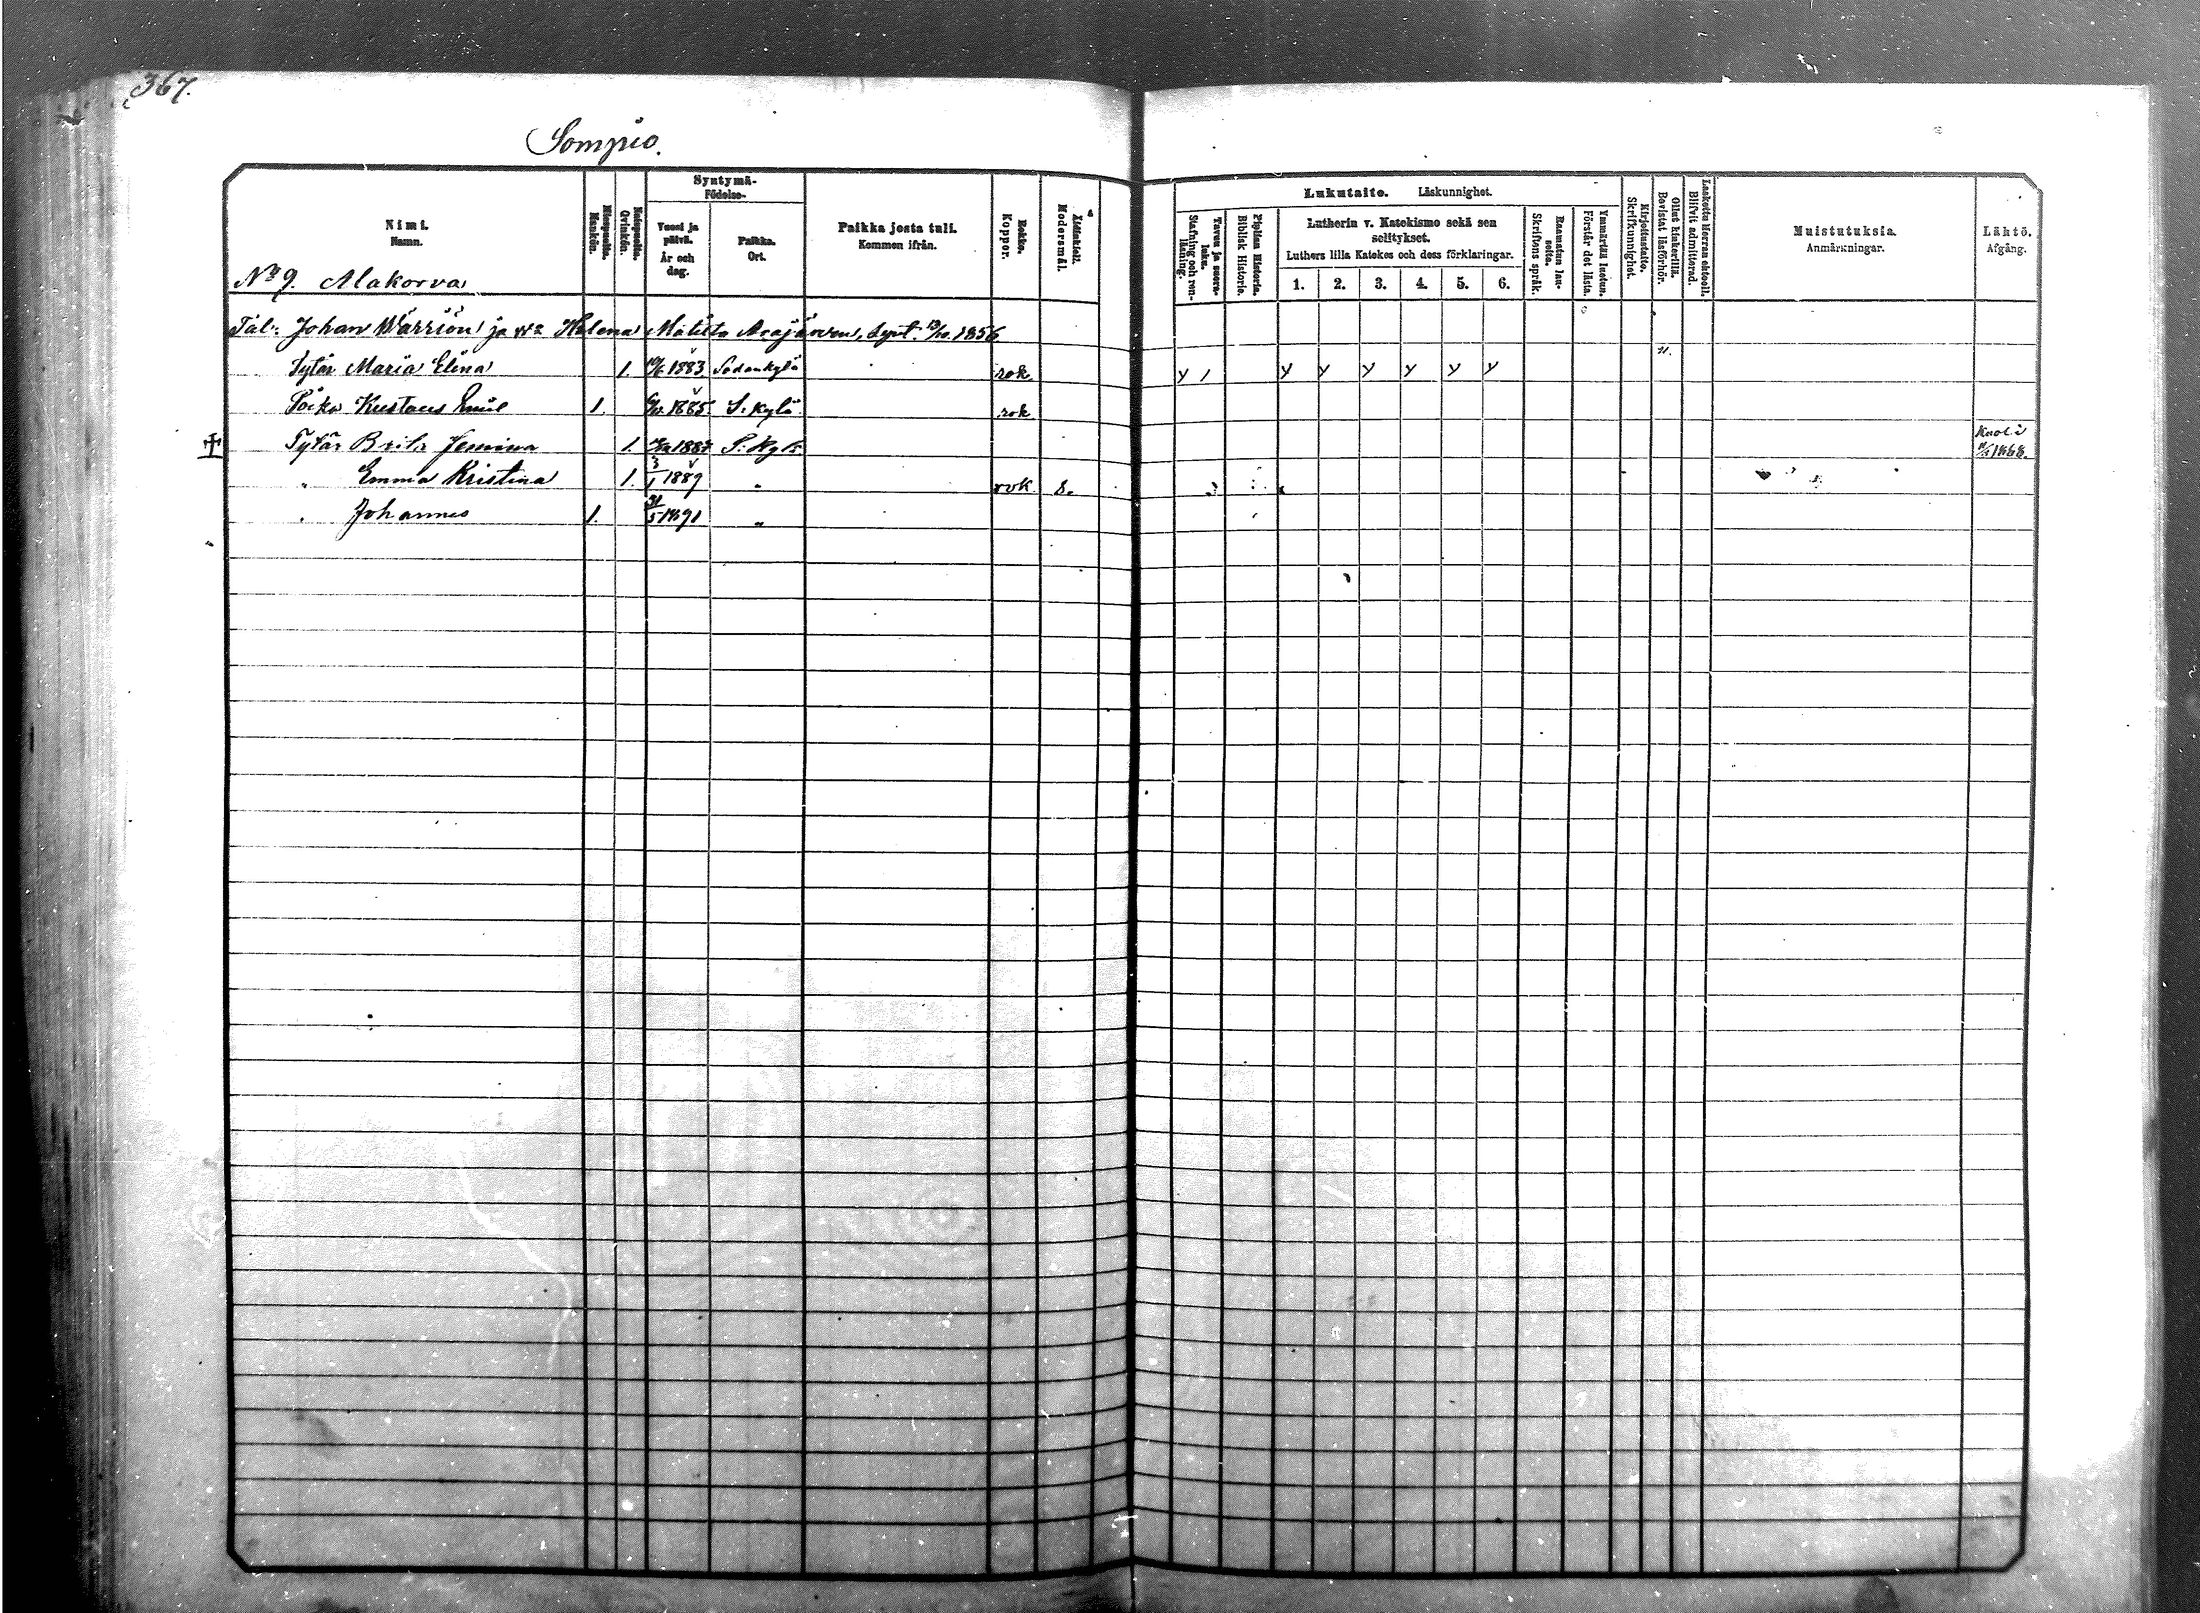 367.
Sompio.
Nimi.
Namn.
Miespuolia.
Mankön.
Naispuolia.
Qvinkön.
Syntymä-
Födelse-
Vuosi ja päivä.
År och dag.
Paikka.
Ort.
Paikka josta tuli.
Kommen ifrån.
Rokko.
Koppor.
Äidinkieli.
Modersmål.
Lukutaito. Läskunnighet.
Tavuu ja sisra-luku.
Stafning och ren-läsning.
Piplian Historia.
Biblisk Historie.
Lutherin v. Katekismo sekä sen selitykset.
Luthers lilla Katekes och dess förklaringar.
1. 2. 3. 4. 5. 6.
Raamatun lau-seita.
Skriftens språk.
Ymmärtää luetun.
Förstår det lästa.
Kirjoitustaito.
Skrifkunnighet.
Ollut kinkerillä.
Bevistat läsförhör.
Laskettu Herran ehtool.
Blifvit admitterad.
Muistutuksia.
Anmärkningar.
Lähtö.
Afgång.
No 9. Alakorva
Tal: Johan Wärriön ja Wo Helena Matilta Arajärven, synt. 13/10. 1856
Tytär Maria Elina 1. 1883 Sodankylä rok. y 1 y y y y y y
Poika Kustaus Emil 1. 1885 S:kylä rok
Tytär Brita Jemina 1. 1887 S:kylä Kuoli 1888.
" Emma Kristina 1. 3/1 1889 " rok 8.
" Johannes 1. 31/5 1891 "